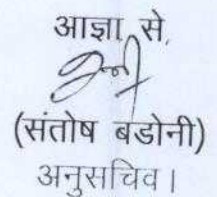 आज्ञा से,
(संतोष बडोनी)
अनुसचिव।